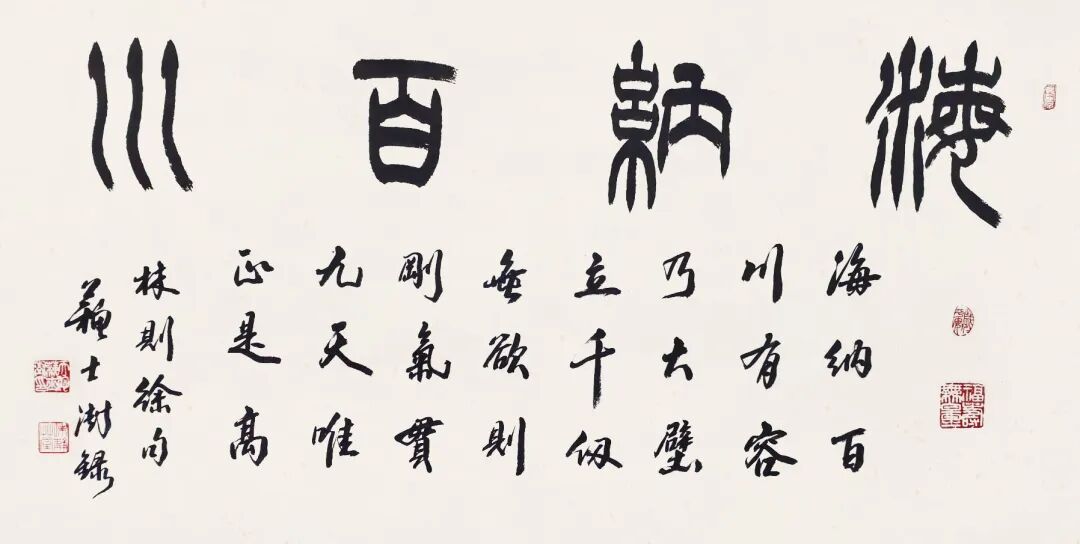 海納百川
海納百
川有容
乃大壁
立千仞
無欲則
剛氣貫
九天唯
正是高
林則徐句
蘇士澍録
福壽無量